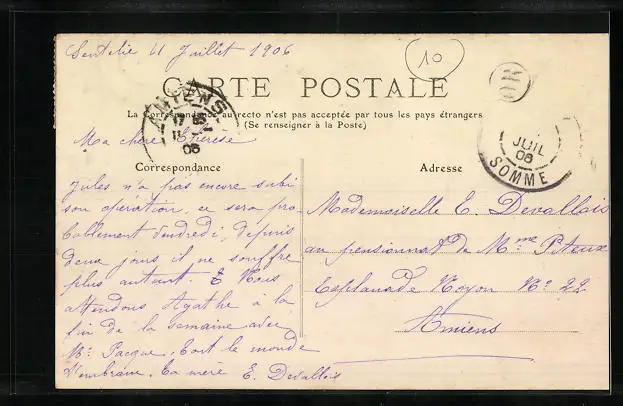 Sentelie 11 Juillet 1906
10
CARTE POSTALE
La Correspondance au recto n'est pas acceptée par tous les pays étrangers
(Se renseigner à la Poste)
AMIENS
17
11
06
OR
JUIL
06
SOMME
Ma chère Thérèse
Correspondance
Jules n'a pas encore subi
son opération, ce sera pro
bablement vendredi, depuis
deux jours il ne souffre
plus autant. Nous
attendons Agathe à la
fin de la semaine avec
Mr Pacque, tout le monde
t'embrasse, ta mère E. Devallois
Adresse
Mademoiselle E. Devallois
au pensionnat de Mme Piteux
Esplanade Noyon No 22
Amiens